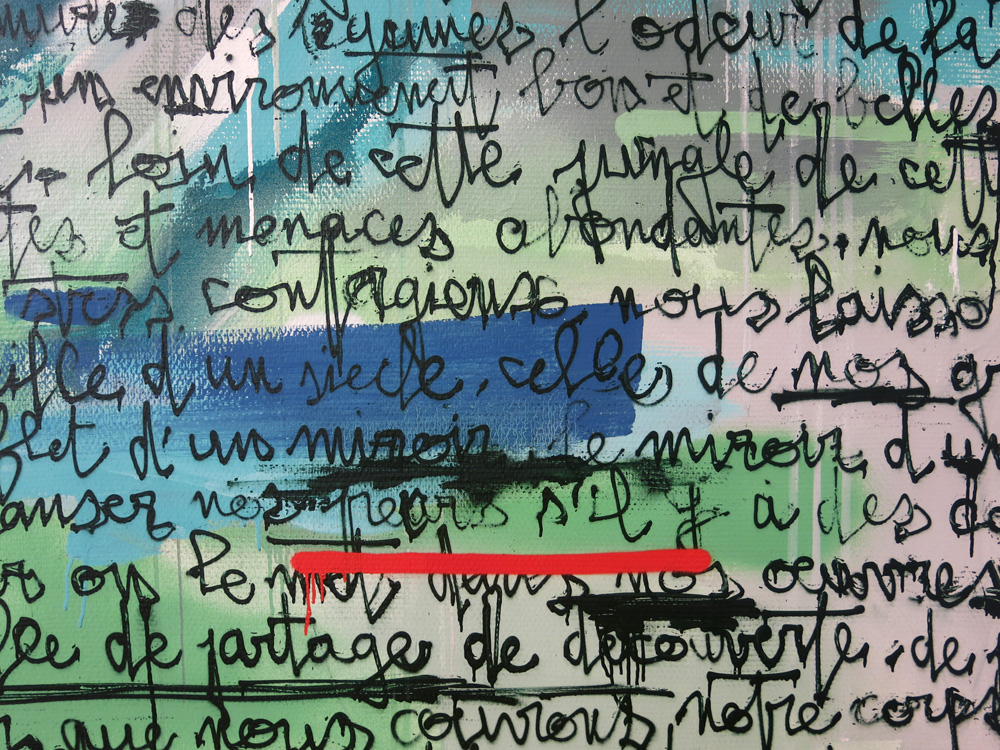 des légumes, l'odeur de la
un environnement bon et de belles
loin de cette jungle de cett
tés et menaces abondantes, nous
contagieux nous laisso
d'un siecle, celle, de nos
d'un miroir le miroir, d'un
anser nos peurs s'il y à des
on le met dans nos oeuvres
de partage de decouverte, de
que nous couvrons, notre corps